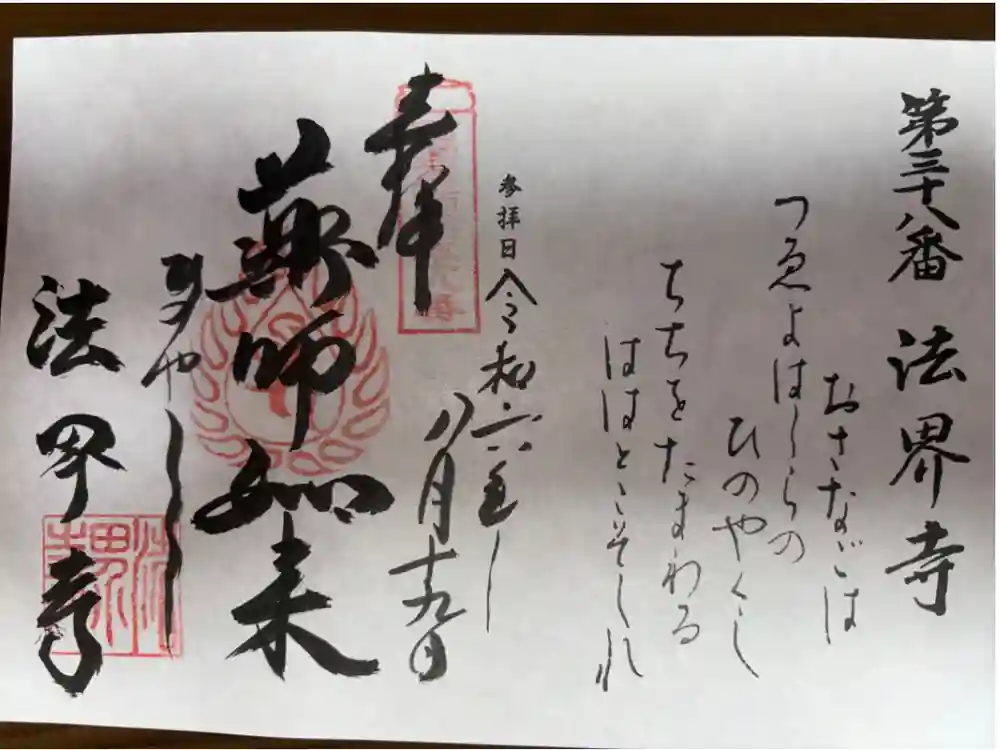 第三十八番 法界寺
おさなごは
つゑよはしらの
ひのやくし
ちちをたまわる
ははとこそしれ
参拝日 令和六年
八月十九日
奉拝
薬師如来
ひのやくし
法界寺
法界寺